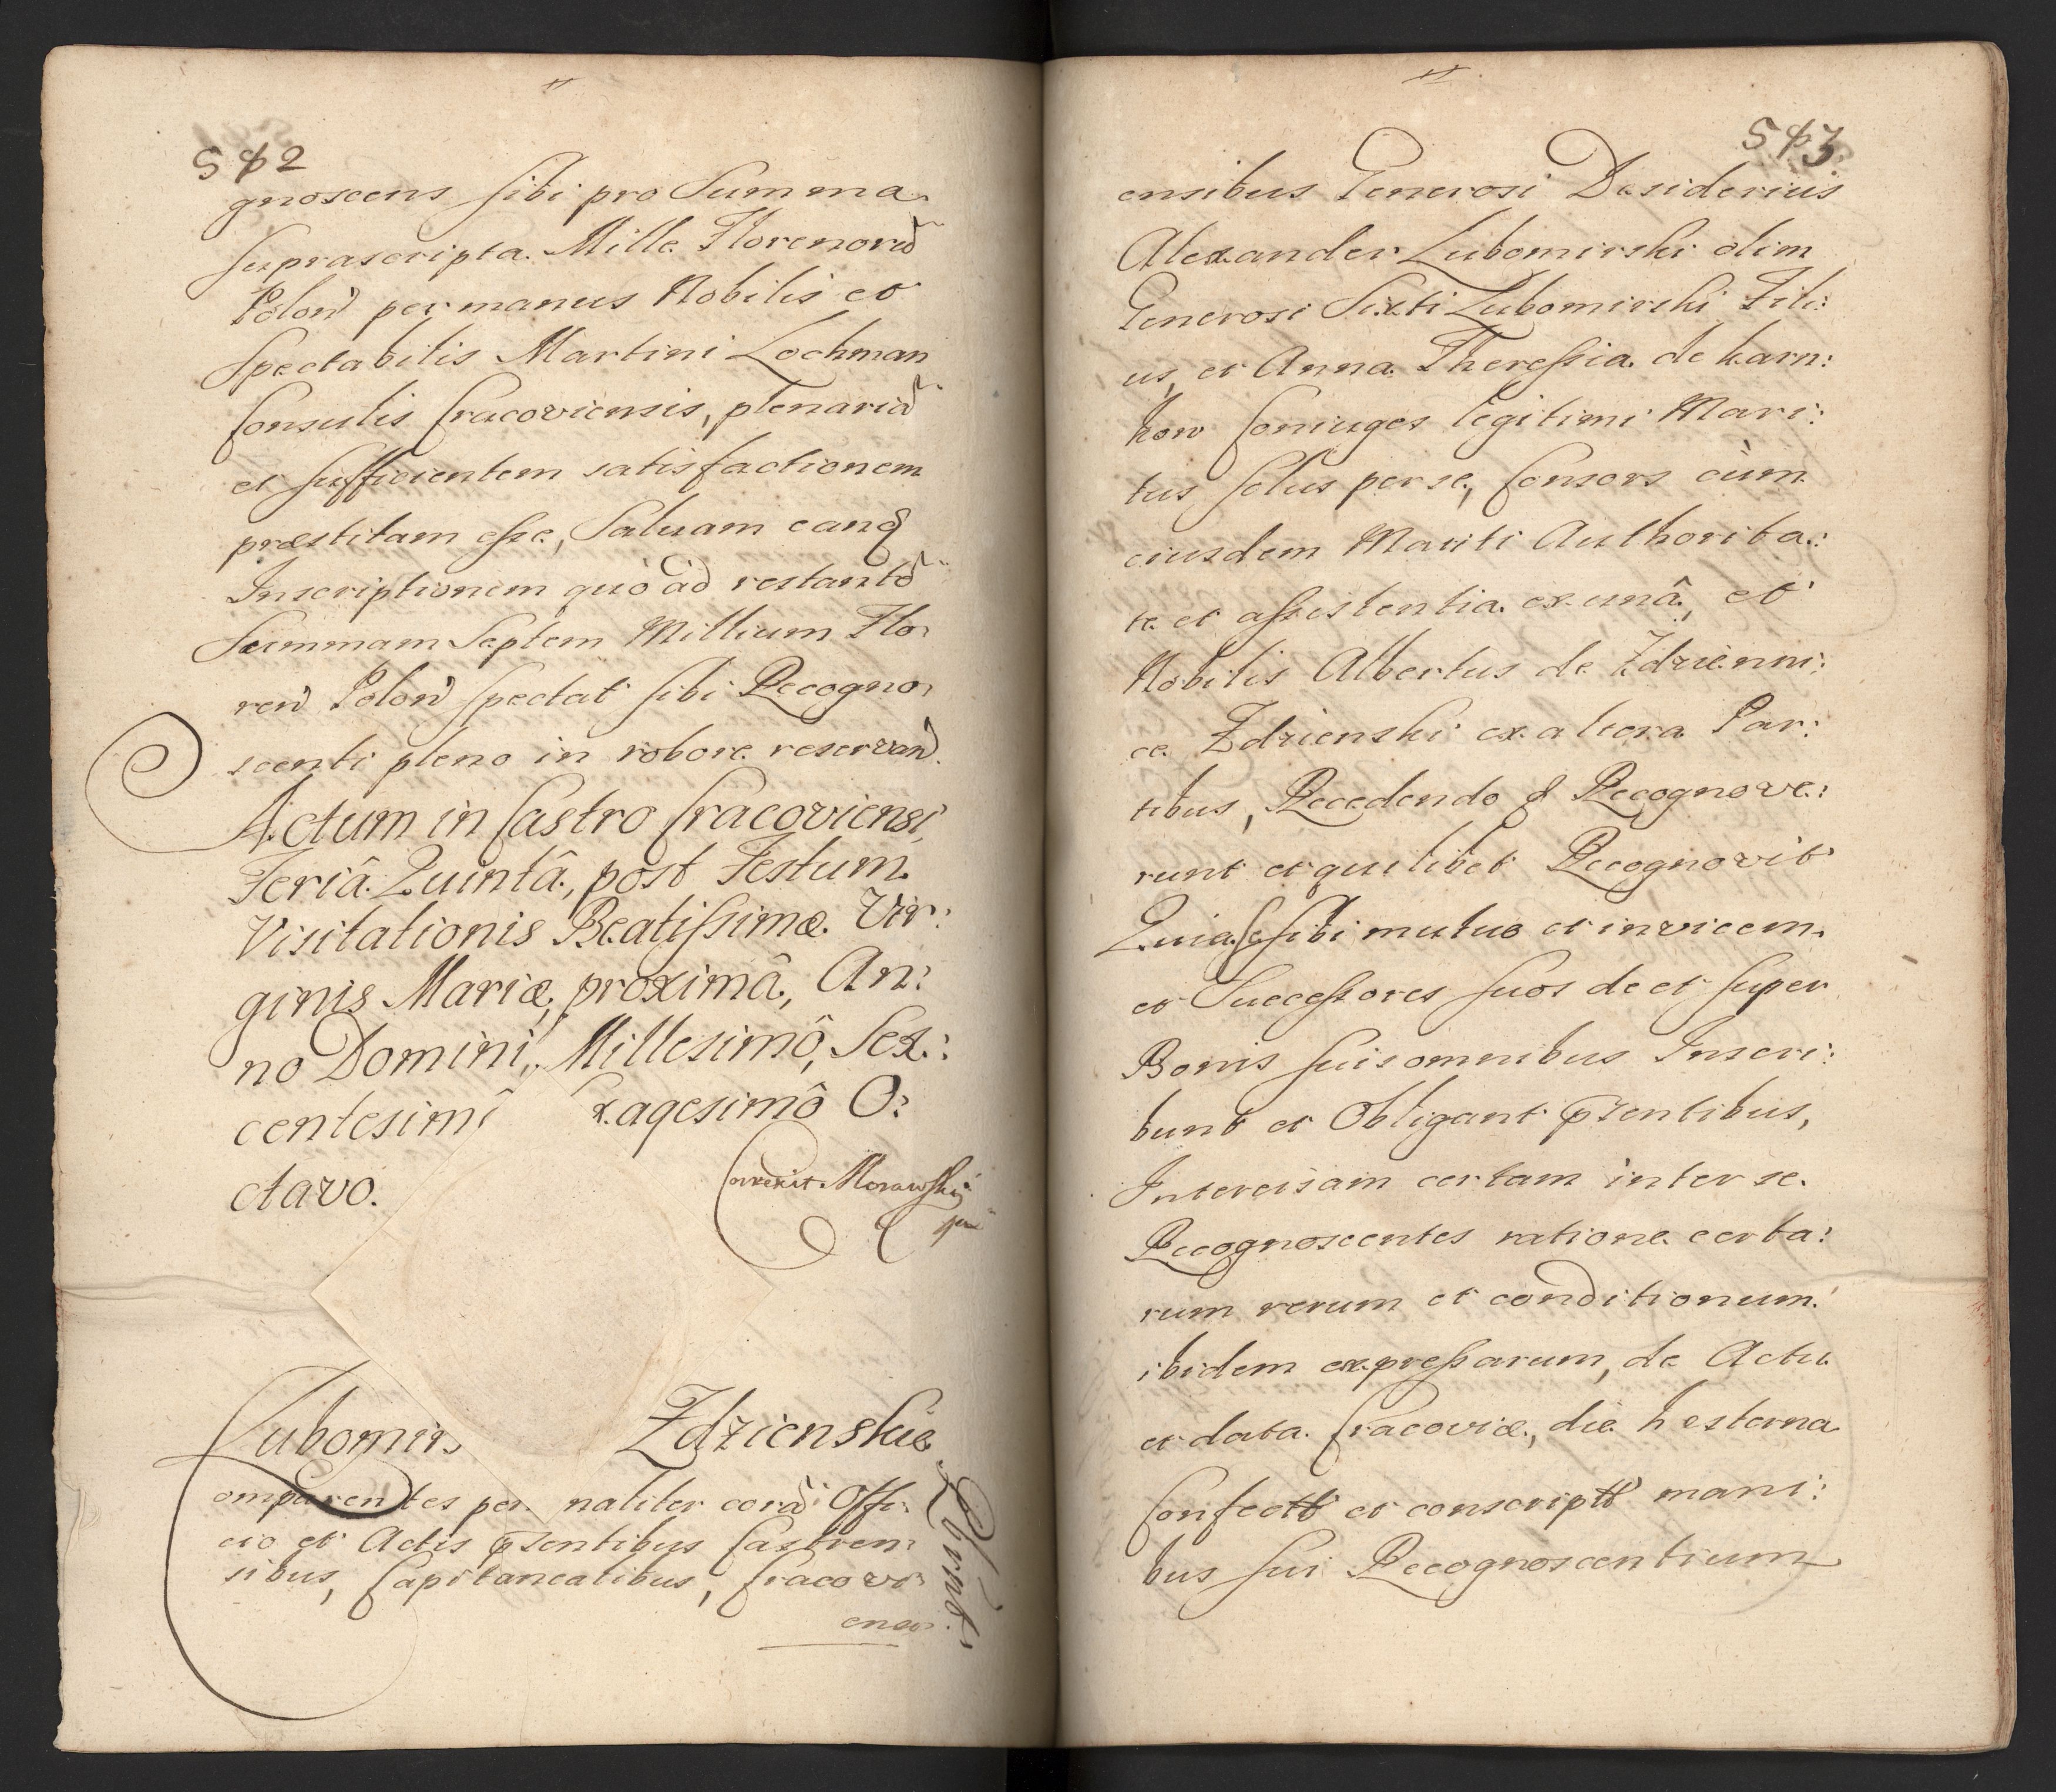 582
gnoscens sibi pro Summa
suprascripta Mille Florenorũ
Polon̄ per manus Nobilis et
Spectabilis Martini Lochman
Consulis Cracoviensis, plenariã
et sufficientem satisfactionem
præstitam esse, Saluam eanq
Inscriptionem quò àd restantẽ
Summam Septem Millium Flo
ren̄ Polon̄ spectat sibi Recogno
scenti pleno in robore reservan̄.
Actum in Castro Cracoviensi
Feriâ Quintâ, post Festum
Visitationis Beatissimæ Vir:
ginis Mariæ, proximâ, An:
no Domini, Millesimô, Sex:
centesimô xagesimô O:
ctavo.
Correxit Morawski
mp
Lubomirs Zdzienskie
omparentes per naliter corã Offi:
cio et Actis p̄sentibus Castren:
sibus, Capitanealibus, Cracovi
ensi
583
ensibus Generosi Desiderius
Alexander Lubomirski olim
Generosi Sixti Lubomirski Fili:
us, et Anna Theressia de karn:
kow Coniuges legitimi Mari:
tus solus per se, Consors cùm
eiusdem Mariti Authorita:
te et assistentia ex unâ, et
Nobilis Albertus de Zdzienni:
ce Zdzienski ex altera Par:
tibus, Recedendo & Recognove:
runt et quilibet Recognovit
Quia se sibi mutuo et invicem
et Successores suos de et super
Bonis suis omnibus Inscri:
bunt et Obligant p̄sentibus,
Intercisam certam inter se
Recognoscentes ratione certa:
rum rerum et conditionum
ibidem expressarum, de Actu
et data Cracoviæ, die hesterna
Confectã et conscriptã mani:
bus sui Recognoscentium